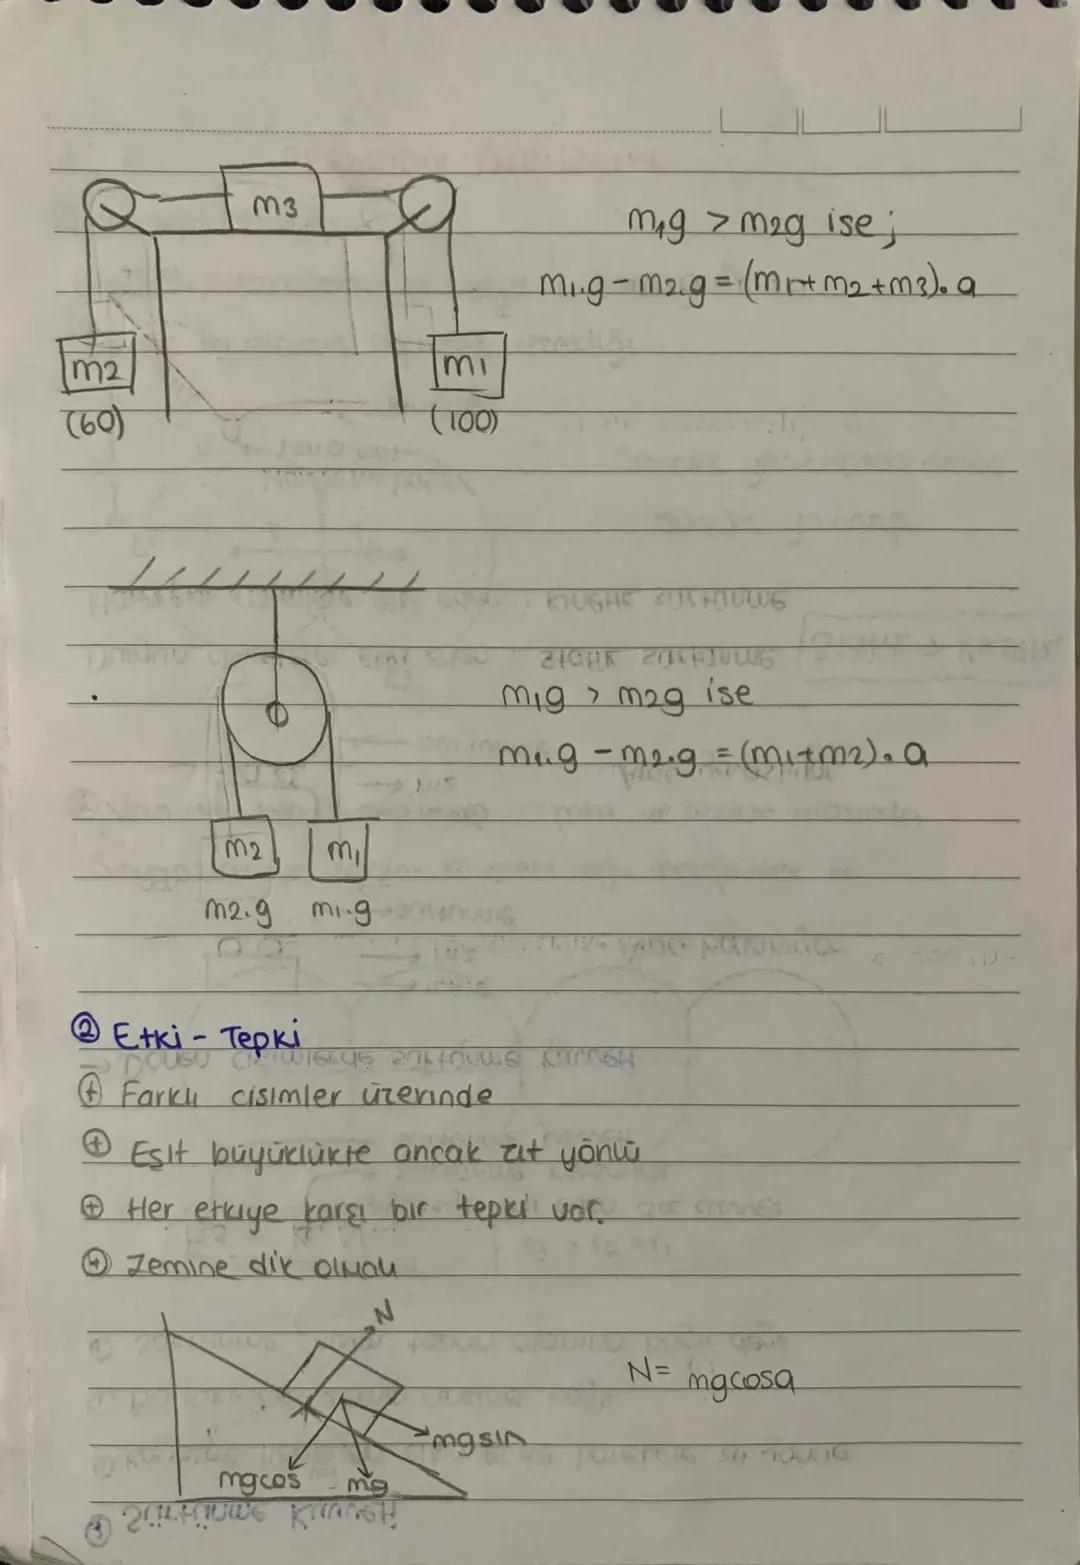 m3
m₁g > m2g ise;
m1.g - m2.g = (m1+m2+m3).a
m2
m1
(60)
(100)
m1g > m2g ise
m1.g - m2.g = (m1+m2).a
m2
m1
m2.g
m1.g
② Etki - Tepki
⊕ Farklı cisimler üzerinde
⊕ Eşit büyüklükte ancak zıt yönlü
⊕ Her etkiye karşı bir tepki var.
⊕ Zemine dik olmalı
N
N= mgcosa
mgsin
mgcos
mg